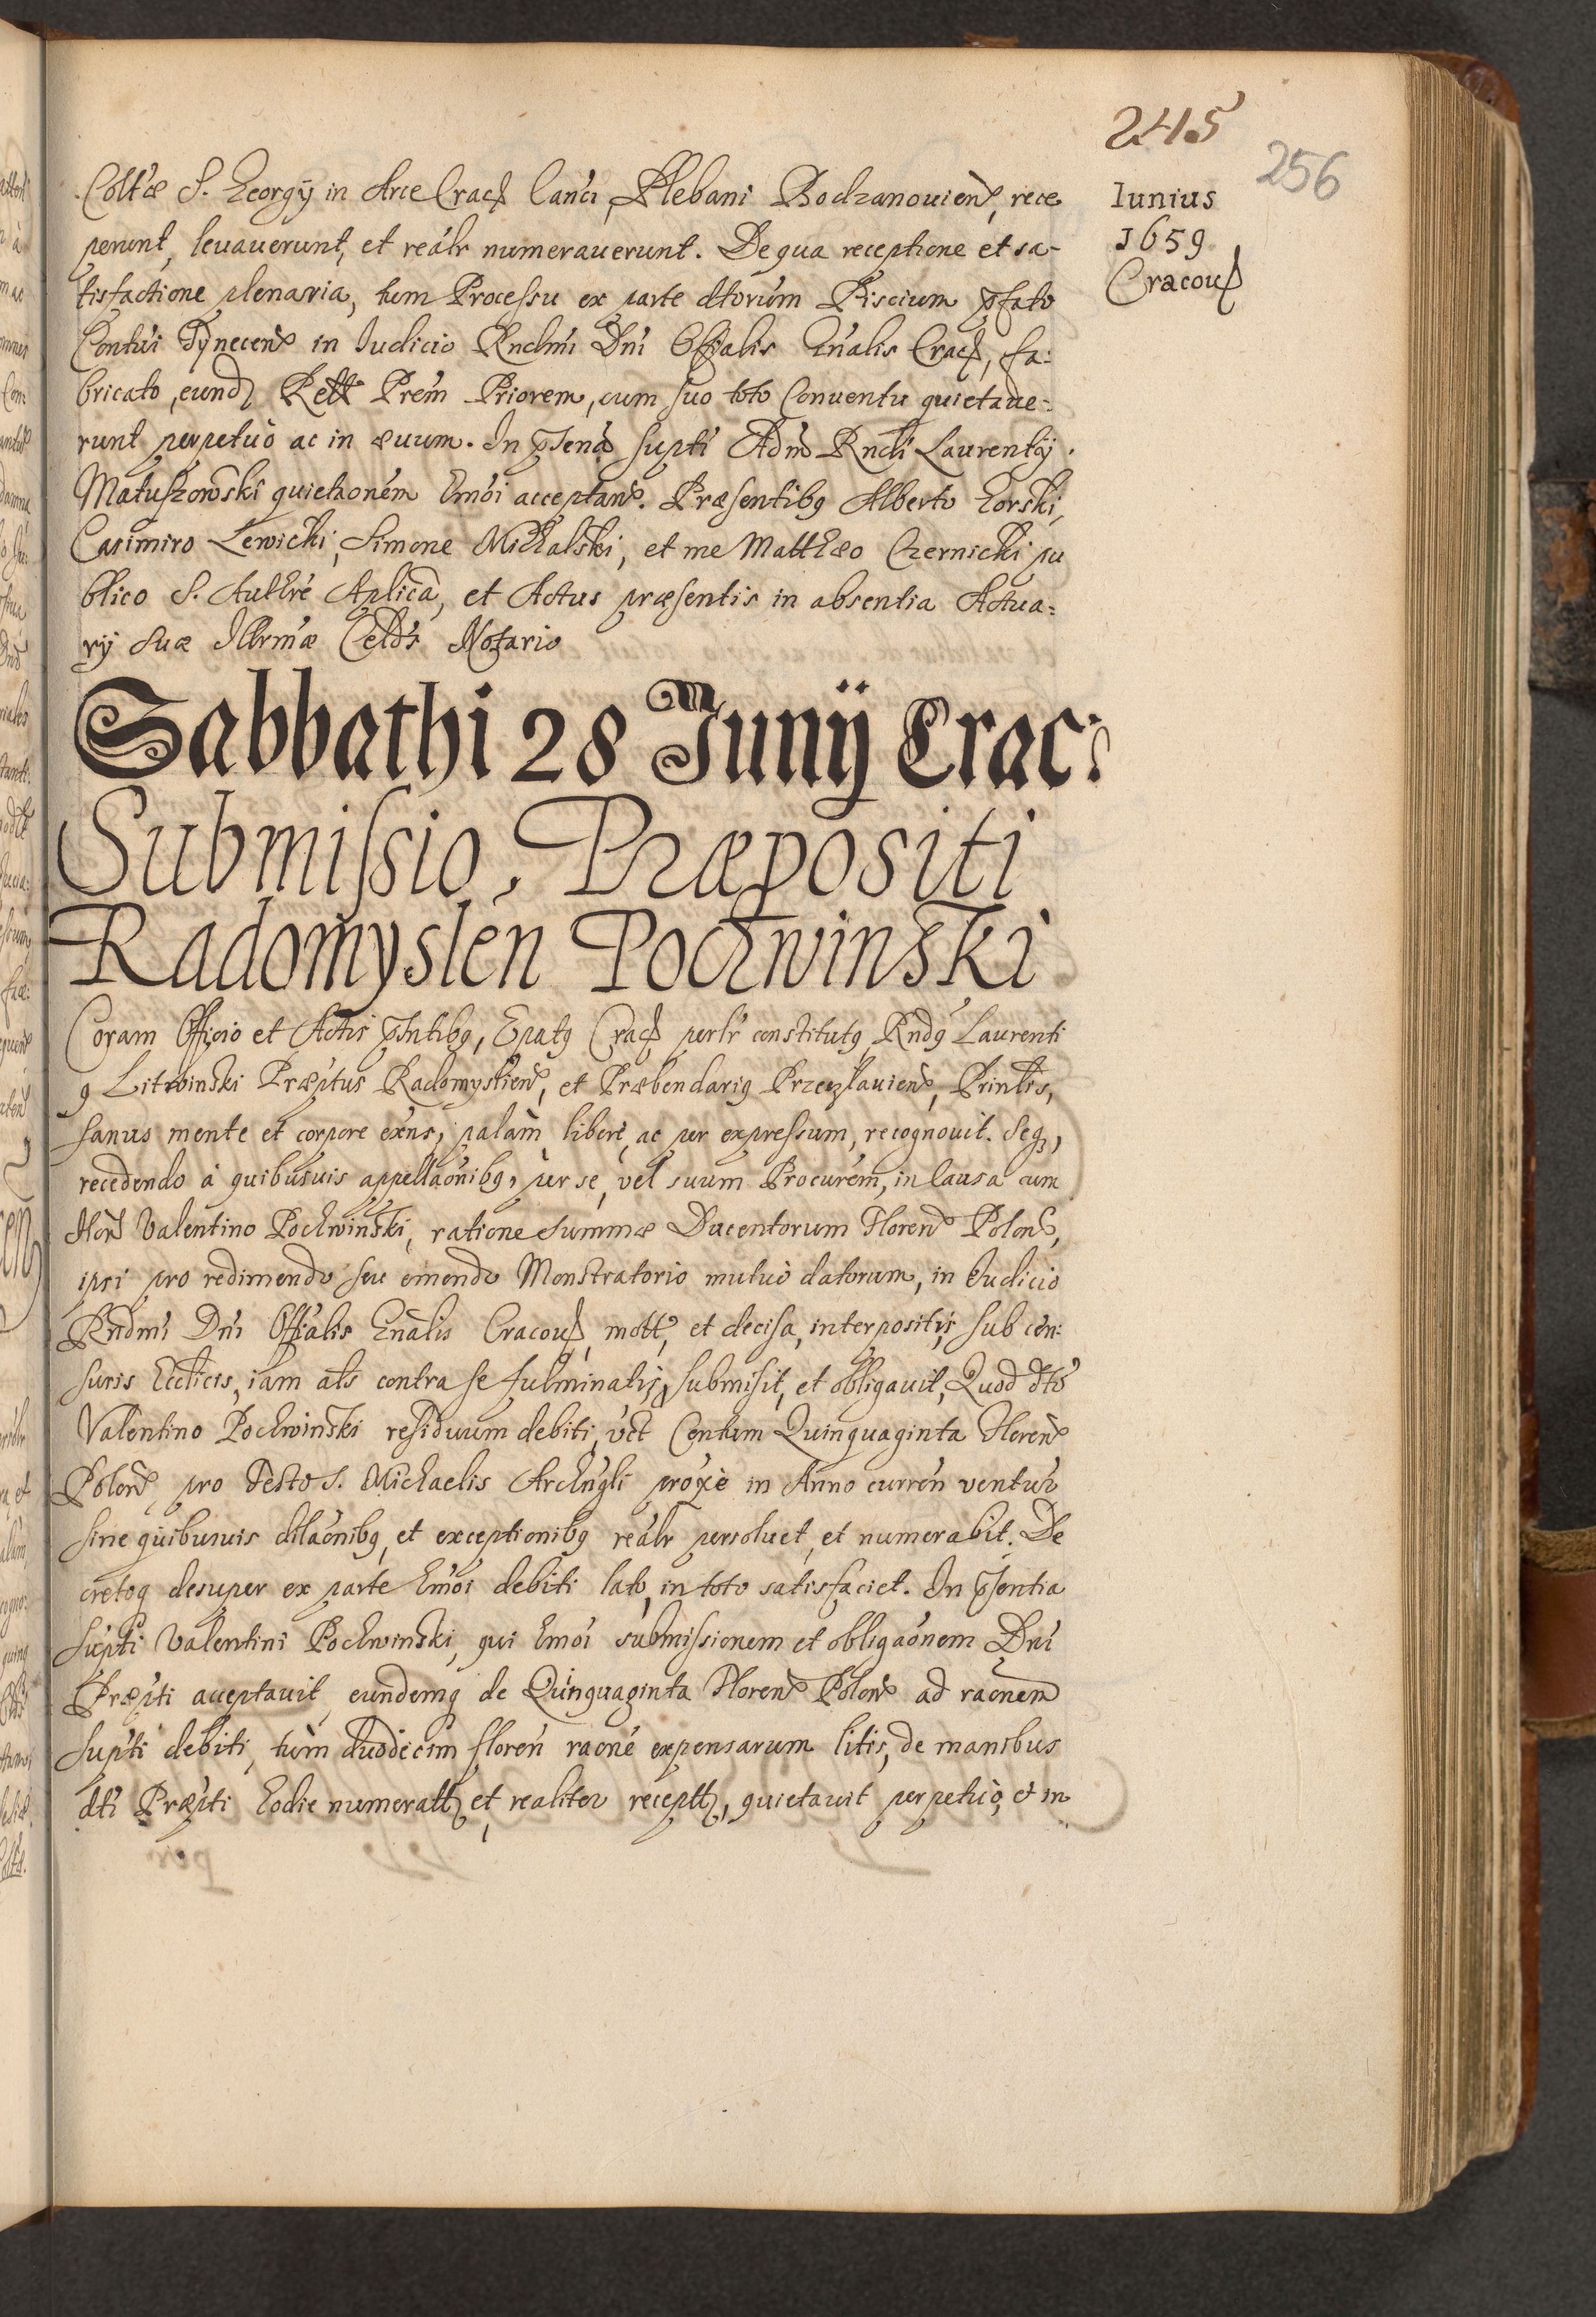 245
256
Iunius
1659
Cracou
Collæ S. Georgÿ in Arce Crac Canci, Plebani Bodzanouien, rece
perunt, leuauerunt, et reálr numerauerunt. De qua receptione et sa-
tisfactione plenaria, tum Processu ex parte dtorum Piscium pfato
Contui Tynecen in Iudicio Rndmi Dni Offialis Gnalis Crac, fa:
bricato, eund Rett Prem Priorem, cum suo toto Conuentu quietaue:
runt perpetuò ac in æuum. In psená supti Adm Rndi Laurentÿ
Matuszowski quietaonem hmoi acceptan. Præsentibq Alberto Gorski,
Casimiro Lewicki, Simone Michalski, et me Matthæo Czernicki pu
blico S. Authre Aplica, et Actus præsentis in absentia Actua:
rÿ Suæ Illrmæ Celds Notario
Sabbathi 28 Junÿ Crac:
Submissio, Præpositi
Radomyslen Pochwinski
Coram Officio et Actis pntibq, Epatq Crac perlr constitutq Rndq Laurenti
q Litwinski Præptus Radomyslien, et Præbendariq Przecslauien, Printis,
sanus mente et corpore exns, palàm liberè, ac per expressum, recognouit. Seq,
recedendo à quibusuis appellaonibq, per se, vel suum Procurem, in Causa cum
Hon Valentino Pochwinski, ratione Summæ Ducentorum Floren Polon,
ipsi pro redimendo seu emendo Monstratorio mutuò datorum, in Iudicio
Rndmi Dni Offialis Gnalis Cracou, mott, et decisa, interpositis sub cen:
suris Ecclicis, iam als contra se fulminatis, submisit, et obligauit, Quod dto
Valentino Pochwinski residuum debiti, vct Centum Quinquaginta Floren
Polon, pro Festo S. Michaelis Archngli proxè in Anno curren ventur
sine quibusuis dilaonibq, et exceptionibq reálr persoluet, et numerabit. De
cretoq desuper ex parte hmoi debiti lato, in toto satisfaciet. In psentia
supti Valentini Pochwinski, qui hmoi submissionem et obligaonem Dni
Præpti acceptauit, eundemq de Quinquaginta Floren Polon ad raonem
supti debiti, tùm duodecim floren raone expensarum litis, de manibus
dti Præpti hodie numeratt, et realiter receptt, quietauit perpetuò, et in